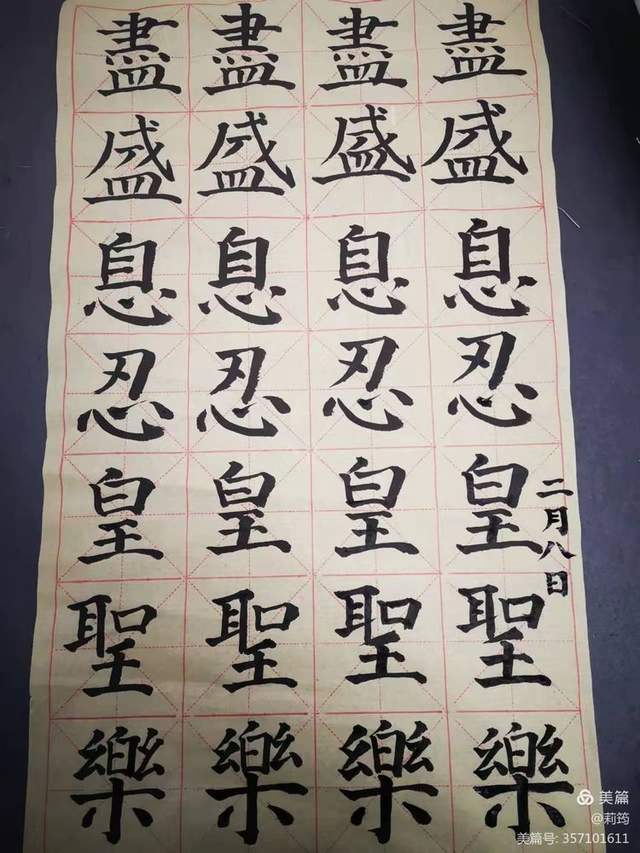 盡盡盡盡
盛盛盛盛
息息息息
忍忍忍忍
皇皇皇皇
聖聖聖聖
樂樂樂樂
二月八日
美篇
@莉筠
美篇号: 357101611